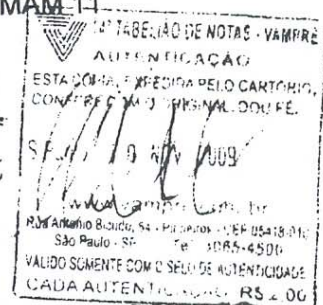 MAM 11
14º TABELIÃO DE NOTAS - VAMPRÉ
AUTENTICAÇÃO
ESTA COPIA, EXPEDIDA PELO CARTORIO,
CONFERE COM O ORIGINAL. DOU FÉ.
S.P. 10 NOV 2009
www.vampre.com.br
Rua Antonio Bicudo, 54 - Pinheiros - CEP 05418-010
São Paulo - SP Tel 3085-4500
VALIDO SOMENTE COM O SELO DE AUTENTICIDADE
CADA AUTENTICAÇÃO R$ 2,00